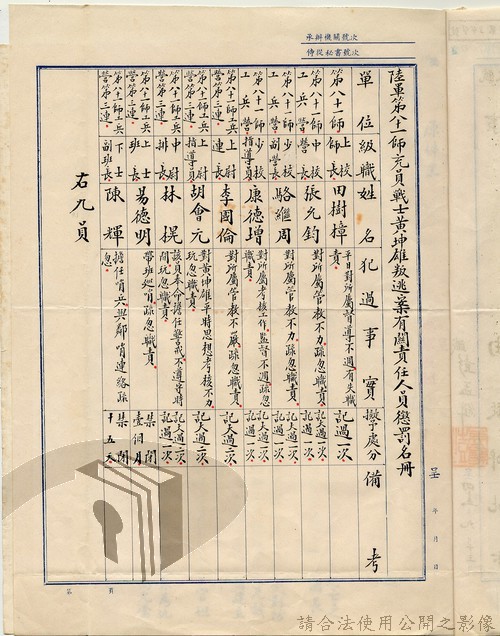 承辦機關號次
侍從秘書號次
陸軍第八十一師充員戰士黃坤雄叛逃案有關責任人員懲罰名冊
單位 級職 姓名 犯過事實 擬予處分 備考
第八十一師 上校師長 田樹樟 平日對所屬督導不週有失職責。 記過一次。
第八十一師工兵營 中校營長 張允鈞 對所屬管教不力疏忽職責。 記大過一次記過一次。
第八十一師工兵營 少校副營長 駱維周 對所屬管教不力疏忽職責。 記過二次。
第八十一師工兵營 少校指導員 康德增 對所屬考核工作監督不週疏忽職責。 記過二次。
第八十一師工兵營第三連 上尉連長 李國倫 對所屬管教不嚴疏忽職責。 記大過二次。
第八十一師工兵營第三連 上尉指導員 胡會元 對黃坤雄平時思想考核不力玩忽職責。 記大過二次
第八十一師工兵營第三連 中尉排長 林棍 該員奉命擔任警戒不遵導時間玩忽職責。 記大過一次記過一次。
第八十一師工兵營第三連 上士班長 易德明 帶班巡哨疏忽職責。 禁閉壹個月
第八十一師工兵營第三連 下士副班長 陳輝 擔任哨兵與鄰哨連絡疏忽。 禁閉十五天
右九員
呈 年 月 日
第 頁
請合法使用公開之影像